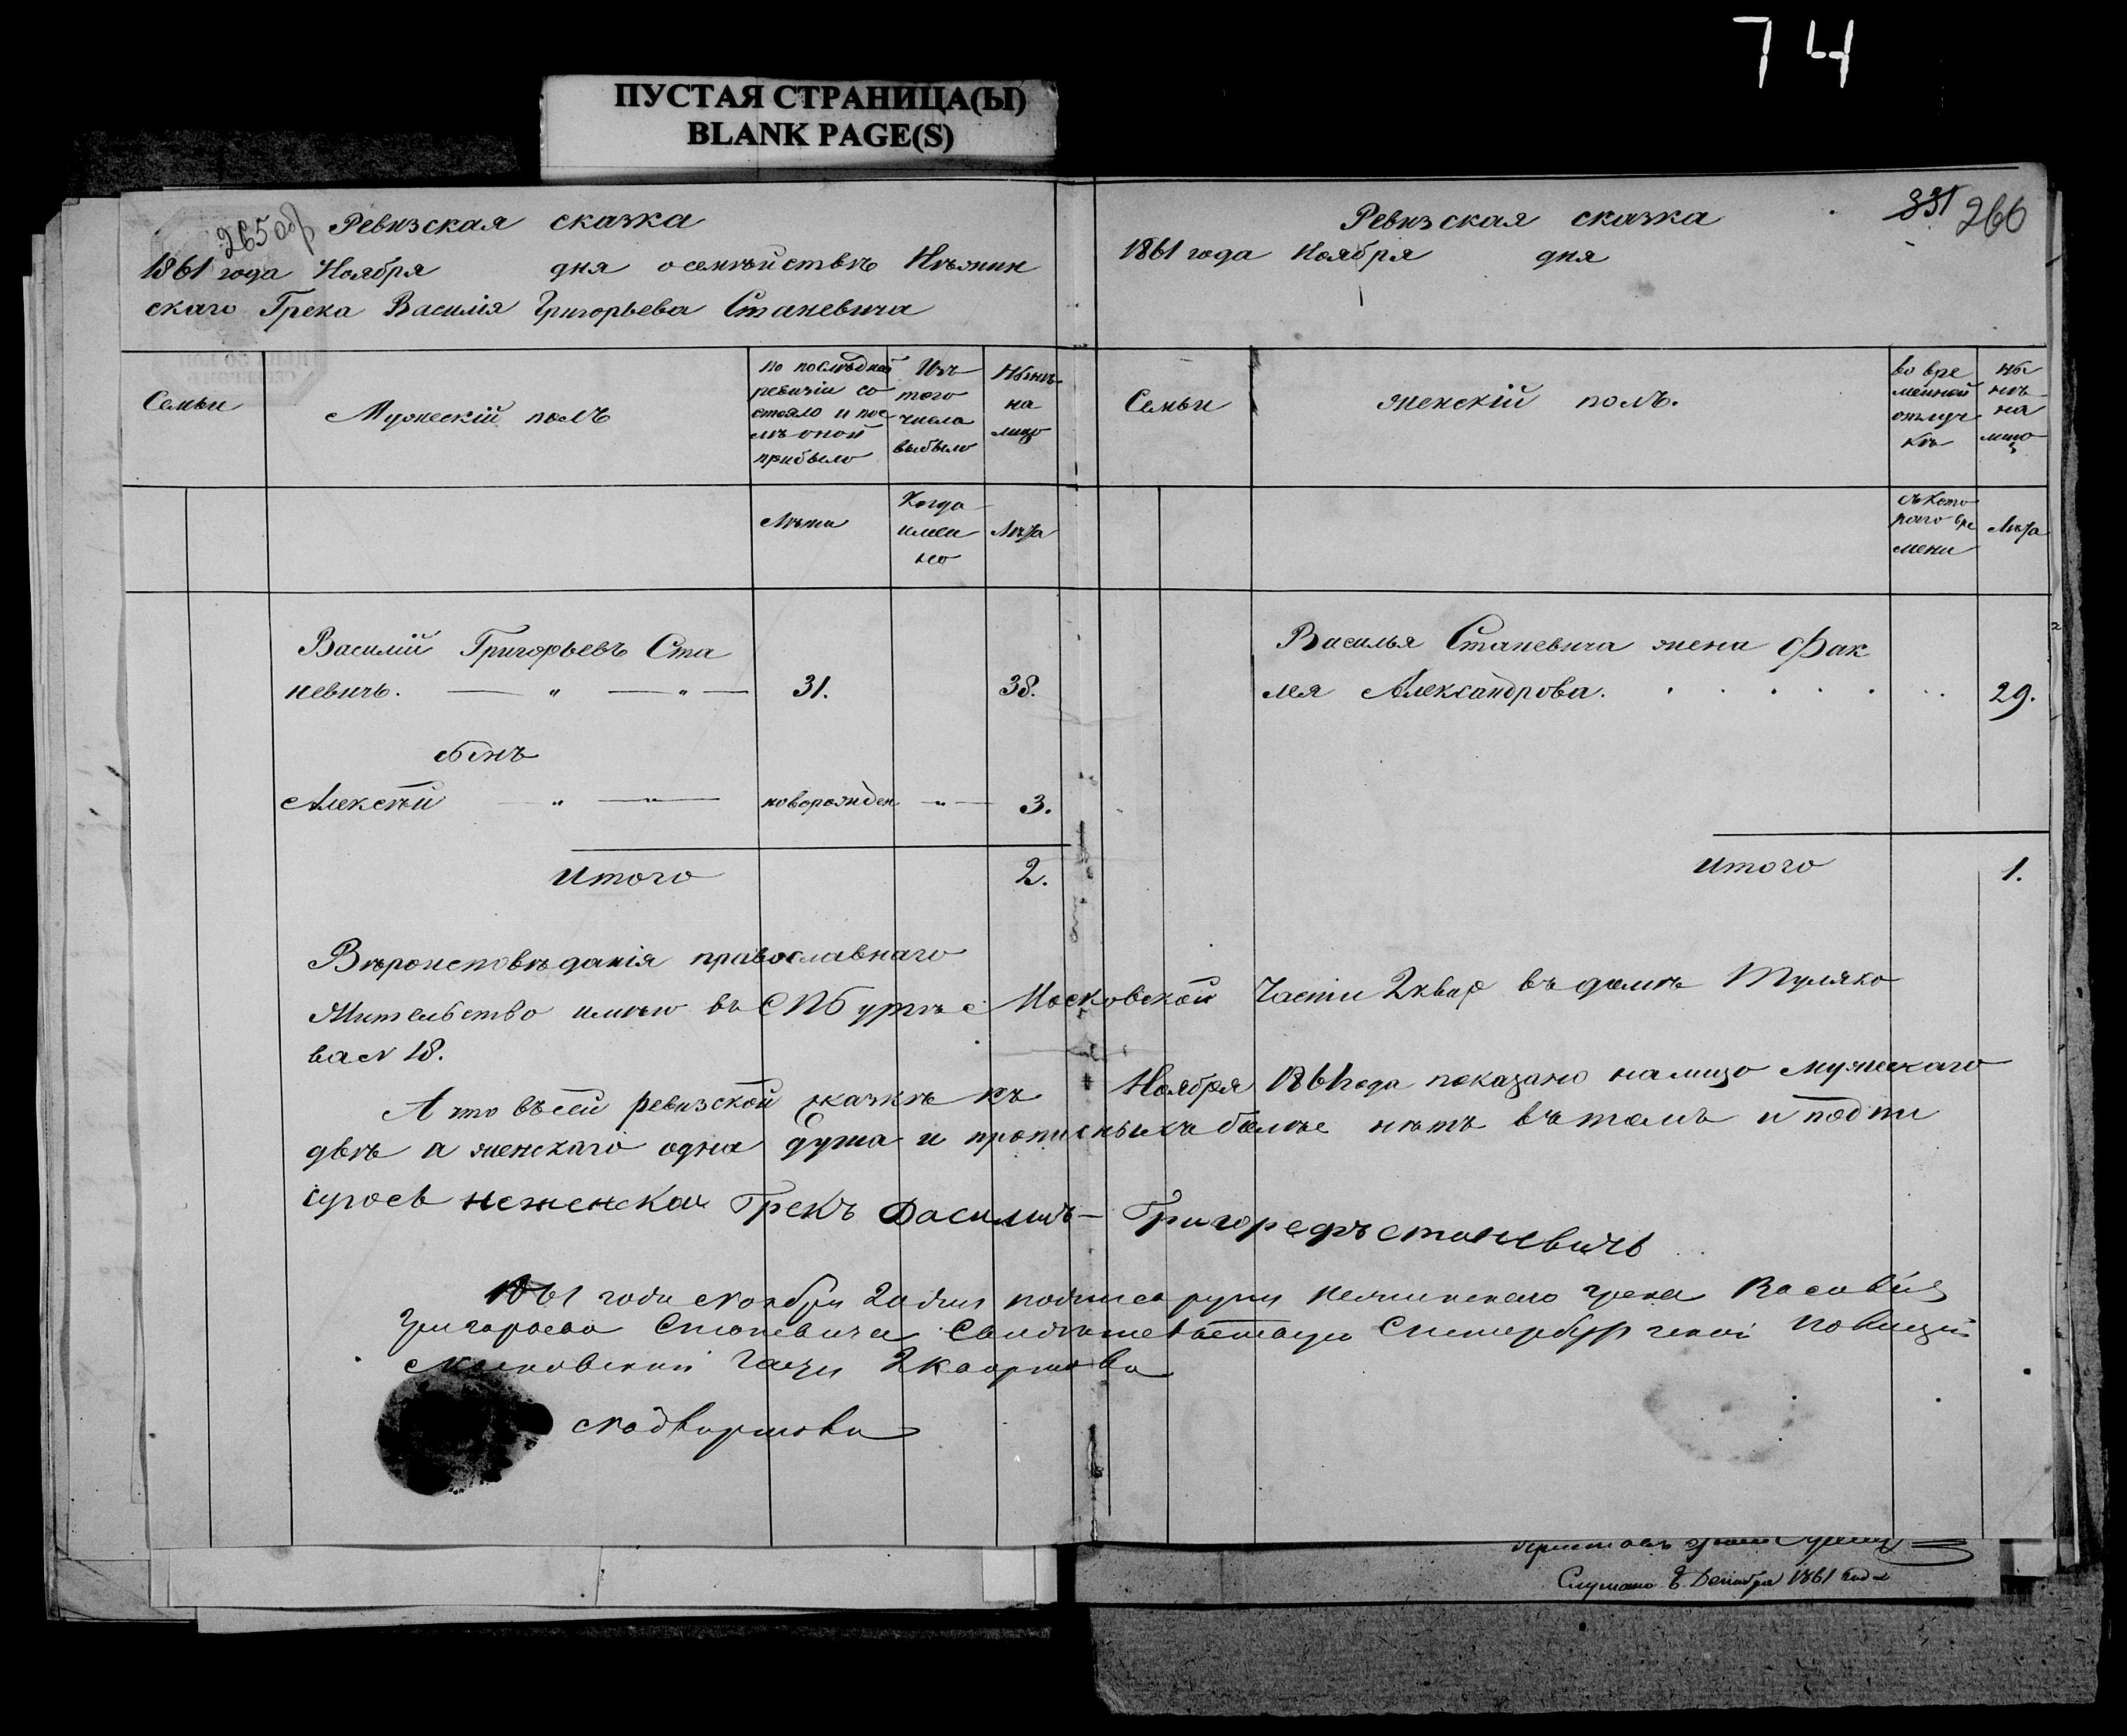 74
ПУСТАЯ СТРАНИЦА(Ы)
BLANK PAGE(S)
265 об
Ревизская сказка
1861 года Ноября дня о семѣйствѣ Нѣжин
скаго Грека Василія Григорьева Станевича
Семьи
Мужескій полъ
по послѣдней
ревизіи со
стояло и пос
лѣ оной
прибыло
Изъ
того
числа
выбыло
Нынѣ
на
лицо
Лѣта
Когда
имен
но
Лѣта
Василій Григорьевъ Ста
невичъ. — " — " — 31. 38.
сынъ
Алексѣй — " — " — новорожден — " — 3.
Итого 2.
331 266
Ревизская сказка
1861 года Ноября дня
Семьи
женскій полъ.
во вре
менной
отлуч
кѣ
ны
нѣ
на
лицо
съ кото
раго вре
мени
Лѣта
Василья Станевича жена Фак
лея Александрова. 29.
Итого 1.
Вѣроисповѣданія православнаго
Жительство имѣю въ СПбургѣ Московской Части 2 квар въ домѣ Туляко
ва N 18.
А что въ сей ревизской сказкѣ къ Ноября 1861 года показано на лицо мужескаго
двѣ а женскаго одна душа и прописныхъ болѣе нѣтъ въ томъ и подпи
суюсь неженскои Грекъ Василий Григорефъ станевичъ
1861 года Ноября 20 дня подпись руки нежинскаго грека Василія
Григорьева Станевича Свидѣтельствую Спетербургской Полиціи
Московской Части 2 Квартала
Надзиратель
Слушано 8 Декабря 1861 года